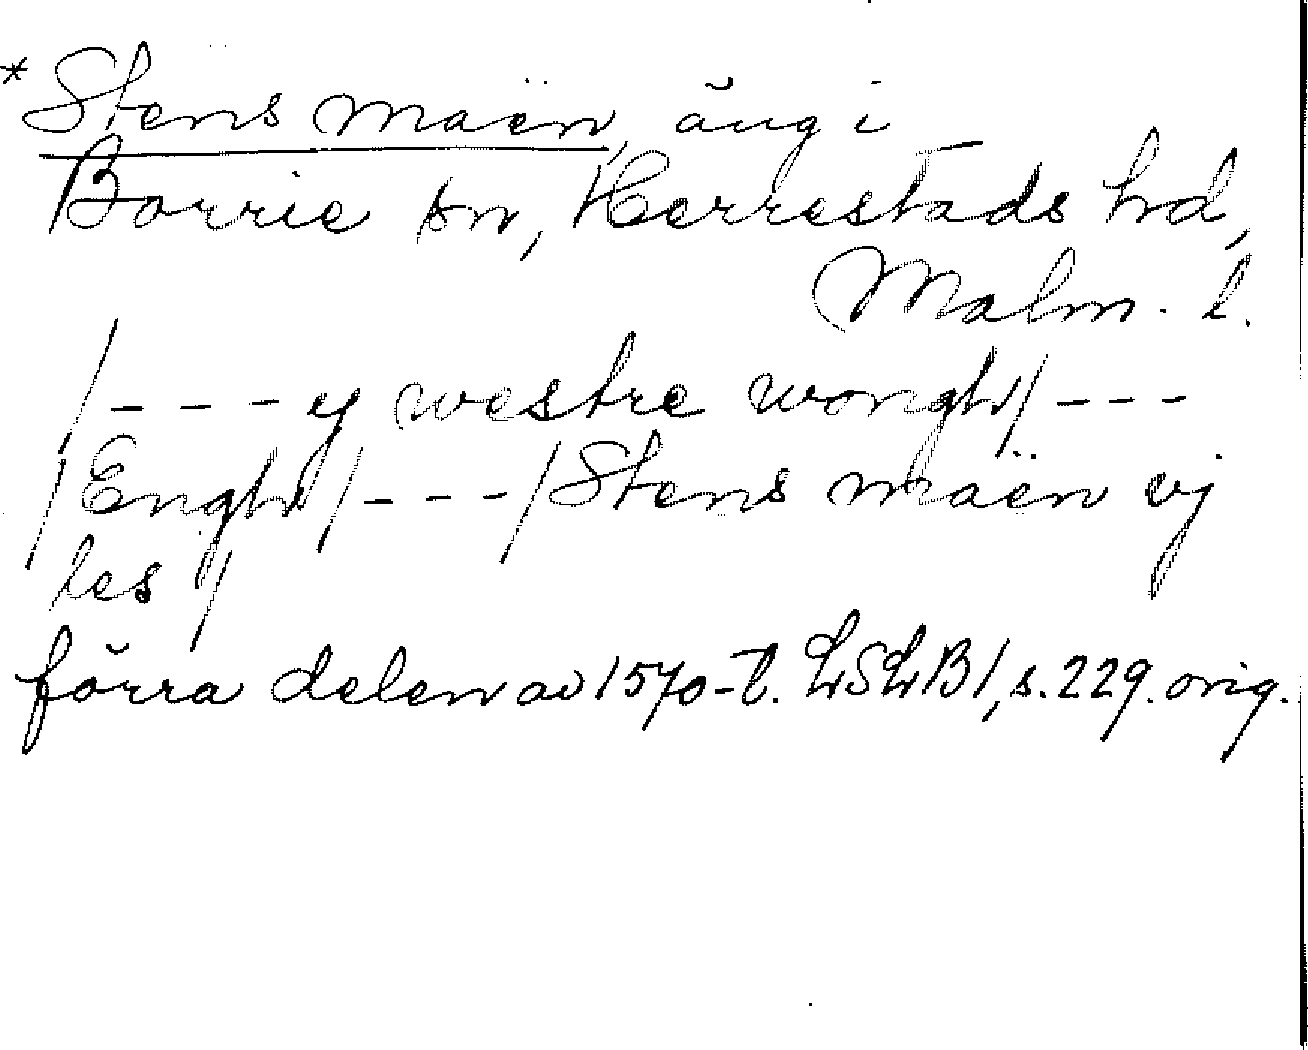 * Stens maën, äng i
Borrie sn, Herrestads hd,
Malm. l.
/ - - - ej westre wongh / - - -
/ Engh / - - - / Stens maën ej
les /
förra delen av 1570-t. LSLB 1, s. 229. orig.